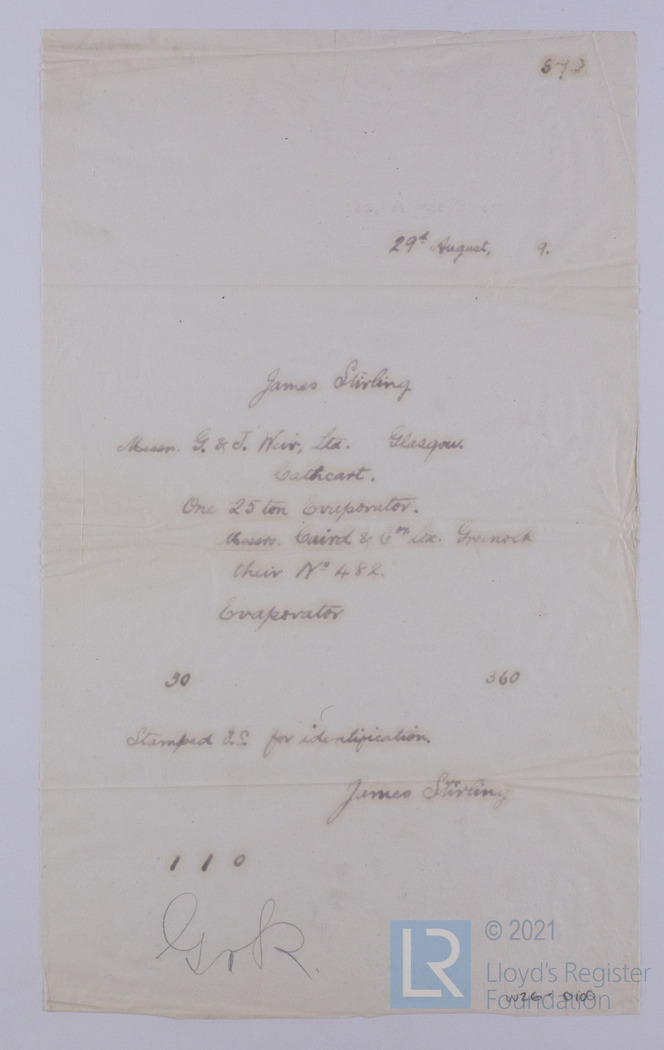 572
29th August, 9.
James Stirling
Messrs. G. & J. Weir, Ltd. Glasgow.
Cathcart.
One 25 ton Evaporator.
Messrs. Caird & Coy. Ltd. Greenock
their No 482.
Evaporator
30 360
Stamped J.S. for identification.
James Stirling
1 1 0
LR
© 2021
Lloyd's Register
Foundation
W26-0100